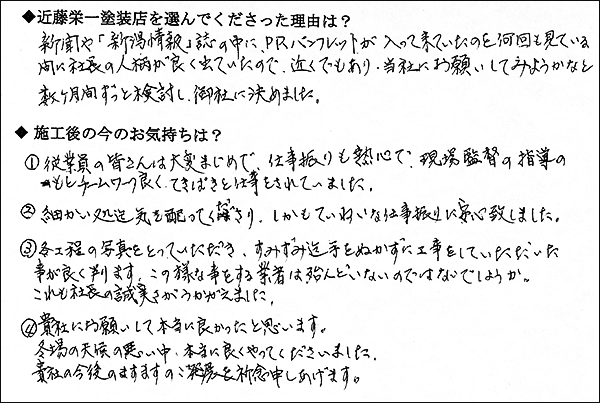 ◆近藤栄一塗装店を選んでくださった理由は？
新聞や「新潟情報」誌の中に、PRパンフレットが入って来ていたのを何回も見ている
間に社長の人柄が良く出ていたので、近くでもあり、当社にお願いしてみようかなと
数ヶ月間ずっと検討し、御社に決めました。
◆ 施工後の今のお気持ちは？
①従業員の皆さんは大変まじめで、仕事振りも熱心で、現場監督の指導の
もとチームワーク良く、てきぱきと仕事をされていました。
② 細かい処迄気を配ってくださり、しかもていねいな仕事振りに安心致しました。
③各工程の写真をとっていただき、すみずみ迄手をぬかずに工事をしていただいた
事が良く判ります。この様な事をする業者は殆んどいないのではないでしょうか。
これも社長の誠実さがうかがえました。
④貴社にお願いして本当に良かったと思います。
冬場の天候の悪い中、本当に良くやってくださいました。
貴社の今後のますますのご発展を祈念申しあげます。